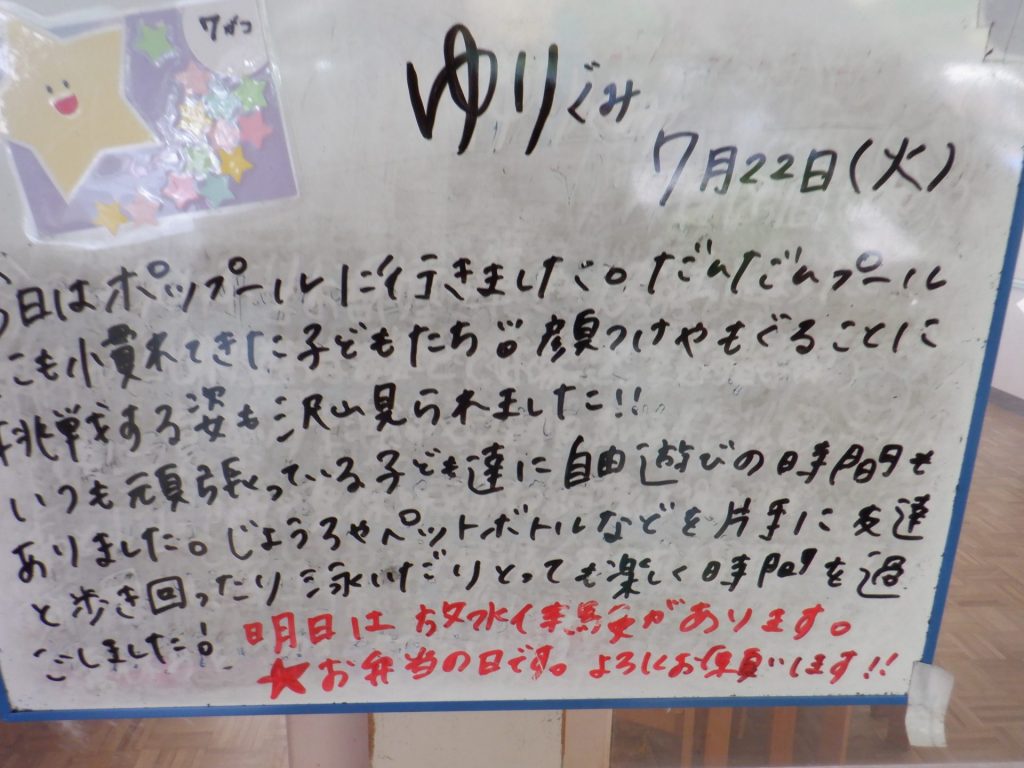 7がつ
ゆりぐみ
7月22日(火)
今日はポップールに行きました。だんだんプール
にも慣れてきた子どもたち。顔つけやもぐることに
挑戦する姿も沢山見られました!!
いつも頑張っている子ども達に自由遊びの時間も
ありました。じょうろやペットボトルなどを片手に友達
と歩き回ったり泳いだりとっても楽しく時間を過
ごしました!
明日は放水体験があります。
★お弁当の日です。よろしくお願いします!!